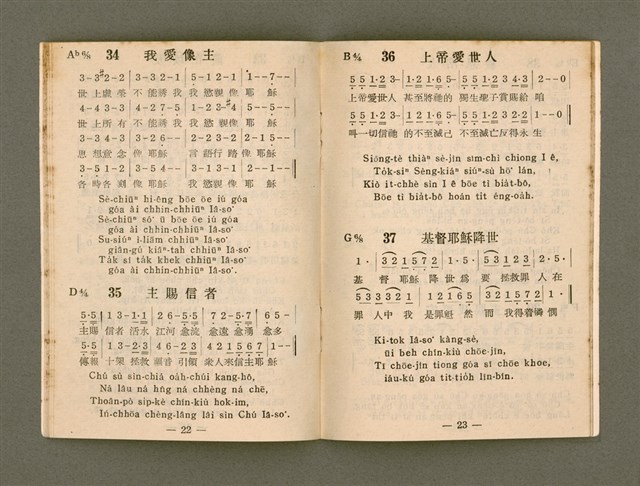 34 我愛像主
3-3#2-2 | 3-3 2-1 | 5-1 2-1 | 1--7--
世上虛榮 不能誘我 我慾親像 耶穌
4-4 3-3 | 4-2 7-5 | 1-2 3-4
世上所有 不能誘我 我慾親像 耶穌
3-3 4-3 | 3-2 6-- | 2-2 3-2 | 2-1 5--
思想意念 像耶穌 言語行踏 像耶穌
3-5 1-2 | 5-4 3--
各時各刻 像耶穌 我慾親像 耶穌
Sè-chiūⁿ hi-êng bōe ōe iú góa
góa ài chhin-chhiūⁿ Iâ-so͘
Sè-chiūⁿ só͘ ū bōe ōe iú góa
góa ài chhin-chhiūⁿ Iâ-so͘
Su-siúⁿ ì-liām chhiūⁿ Iâ-so͘
giân-gú kiâⁿ-tah chhiūⁿ Iâ-so͘
Ta̍k sî ta̍k khek chhiūⁿ Iâ-so͘
góa ài chhin-chhiūⁿ Iâ-so͘.
D 4/4 35 主賜信者
5·5 | 1 3-1·1 | 2 6-5·5 | 7 2-5·7 | 6 5-
主賜 信者 活水 江河 愈流 愈遠 愈濶 愈多
5·5 | 1 3-2·3 | 4 6-2·3 | 4 2 1 5 6 7 | 1--
傳報 十架 拯救 福音 引領 衆人來信主耶穌
Chú sù sìn-chiá oa̍h-chúi kang-hô,
Ná lâu ná hn̄g ná chhèng ná chē,
Thoân-pò si̍p-kè chín-kiù hok-im,
Ín-chhōa chèng-lâng lâi sìn Chú Iâ-so͘.
— 22 —
B 4/4 36 上帝愛世人
5 5 | 5 1·2 3- | 1 2·1 6 5- | 5 5 | 5 1·2 3 4·3 | 2--0
上帝愛世人 甚至將祂的 獨生聖子賞賜給 咱
5 5 | 5 1·2 3- | 1 2·1 6 5- | 5 5 | 5 1·2 3 2·2 | 1--0
叫一切信祂 的不至滅亡 不至滅亡反得永 生
Siōng-tè thiàⁿ sè-jîn sīm-chì chiong I ê,
To̍k-siⁿ Sèng-kiáⁿ siúⁿ-sù hō͘ lán,
Kiò it-chhè sìn I ê bōe tì bia̍t-bô,
Bōe tì bia̍t-bô hoán tit éng-oa̍h.
G 6/8 37 基督耶穌降世
1· | 3 2 1 5 7 2 | 1·5· | 5 3 1 2 3 | 2·5·
基 督 耶穌 降 世 爲 要 拯救罪 人 在
5 3 3 3 2 1 | 1 2 1 6 5 | 3 2 1 5 7 2 | 1·
罪 人中 我 是罪魁 然 而 我得着 憐 憫
Ki-tok Iâ-so͘ kàng-sè,
ūi beh chín-kiù chōe-jîn,
Tī chōe-jîn tiong góa sī chōe khoe,
iáu-kú góa tit-tio̍h lîn-bín.
— 23 —